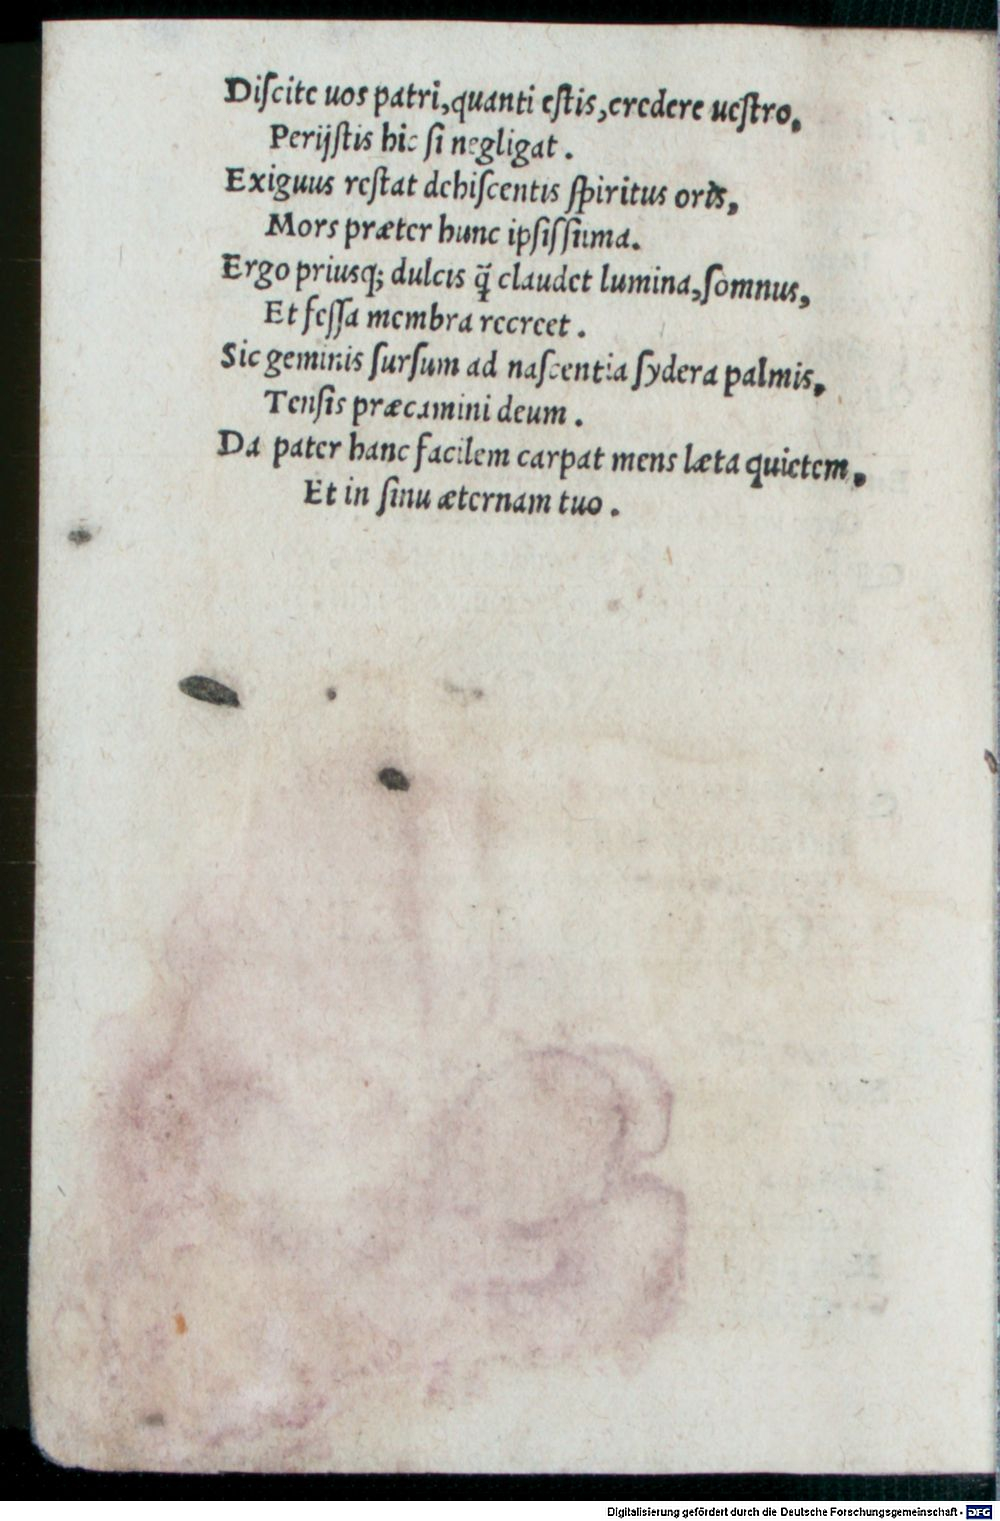 Diſcite uos patri, quanti eſtis, credere ueſtro,
Perijſtis hic ſi negligat.
Exiguus reſtat dehiſcentis ſpiritus oris,
Mors præter hunc ipſiſſima.
Ergo priusq; dulcis q̃ claudet lumina, ſomnus,
Et feſſa membra recreet.
Sic geminis ſurſum ad naſcentia ſydera palmis,
Tenſis præcamini deum.
Da pater hanc facilem carpat mens læta quietem,
Et in ſinu æternam tuo.
Digitalisierung gefördert durch die Deutsche Forschungsgemeinschaft - DFG